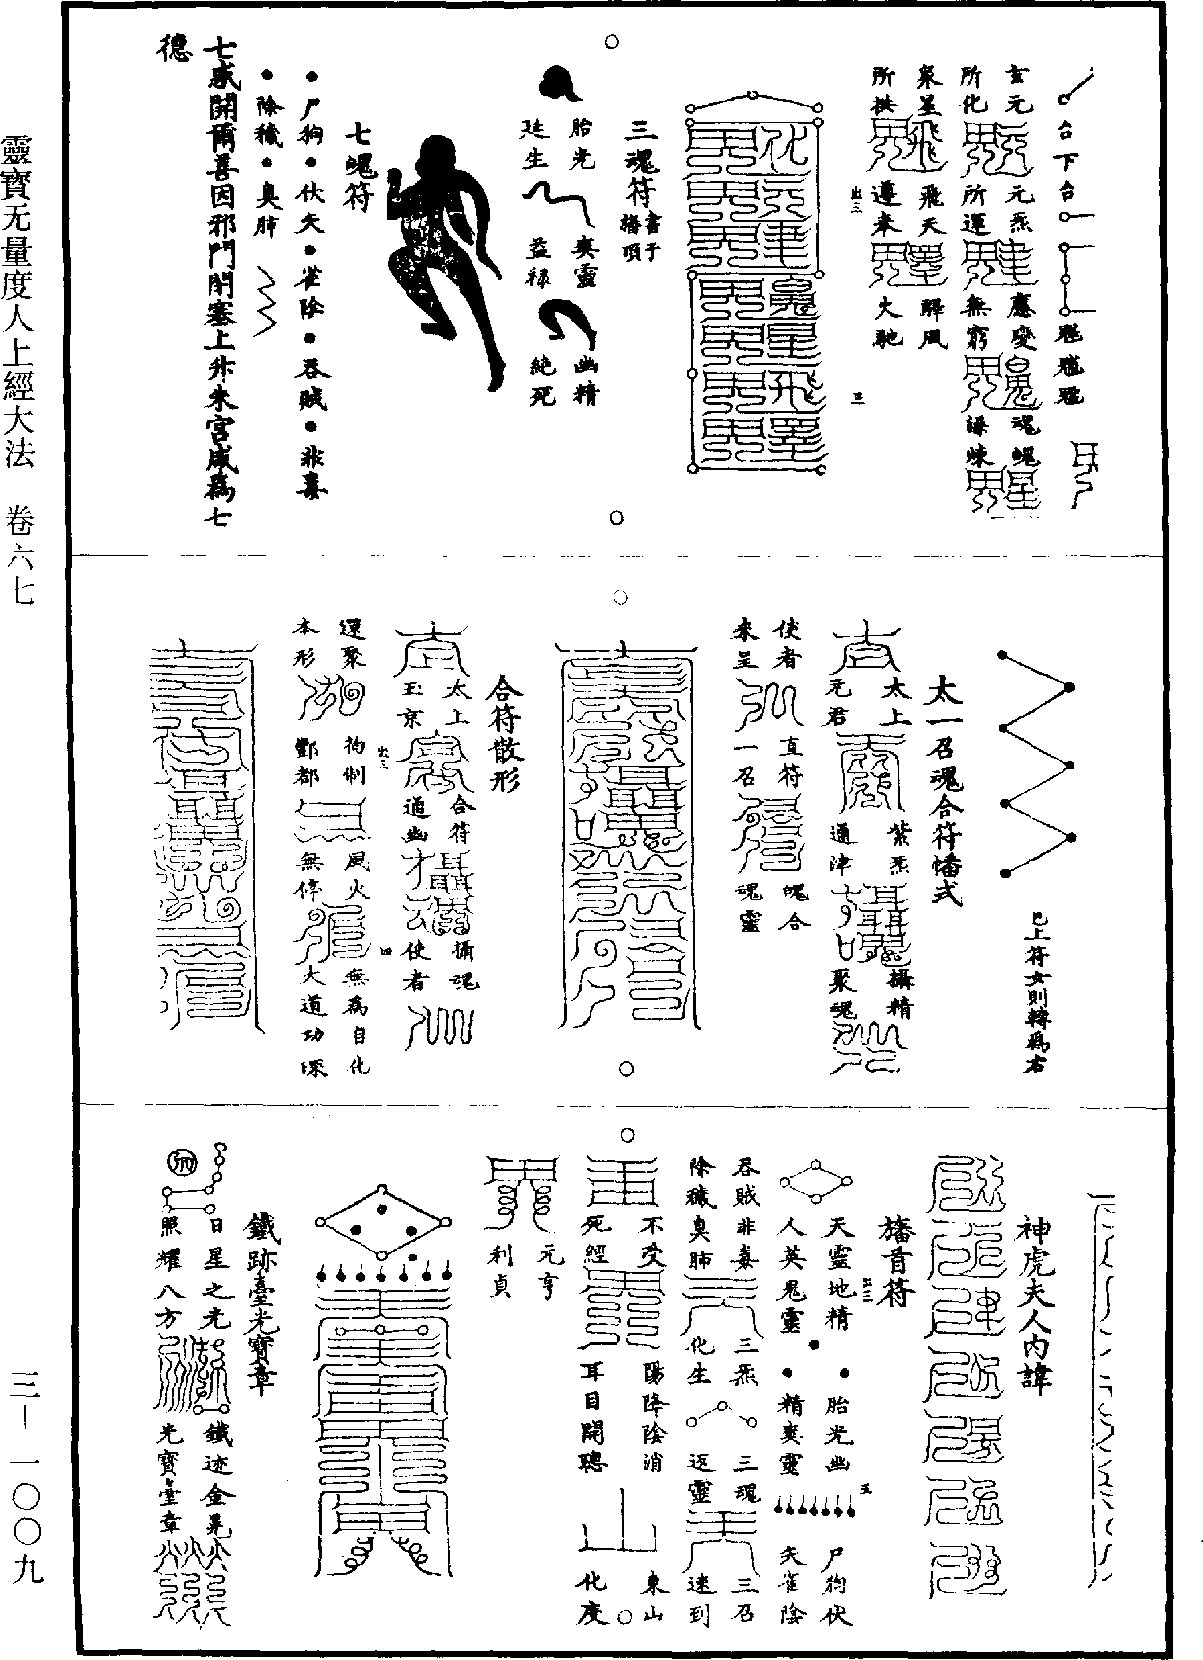 台下台
魒魓魓
玄元
所化
元炁
所運
應變
無窮
魂魄
澡煉
衆星
所拱
飛天
遵來
解風
火馳
三魂符
書于
旛頂
胎光
延生
爽靈
益祿
幽精
絕死
七魄符
尸狗伏矢雀陰吞賊非毒
除穢臭肺
七感開爾善因邪門閉塞上升朱宮咸爲七
德
已上符女則轉爲右
太一召魂合符幡式
太上
元君
紫炁
通津
攝精
聚魂
使者
來呈
直符
一召
魄合
魂靈
合符散形
太上
玉京
合符
通幽
攝魂
使者
還聚
本形
拘制
酆都
風火
無停
無爲自化
大道功深
神虎夫人內諱
旛首符
天靈地精
人英鬼靈
胎光幽
精爽靈
尸狗伏
矢雀陰
吞賊非毒
除穢臭肺
三炁
化生
三魂
返靈
三召
速到
不受
死經
陽降陰消
耳目開聰
東山
化度
元亨
利貞
鐵跡臺光寶章
日星之光
照耀八方
鐵迹金晃
光寶臺章
靈寶无量度人上經大法 卷六七
三—一〇〇九